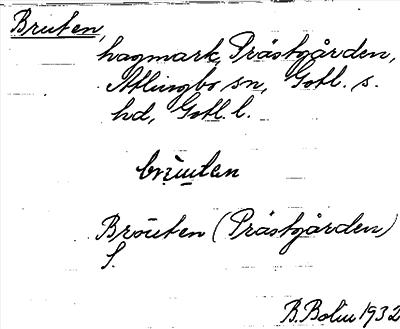 Bruten,
hagmark, Prästgården,
Atlingbo sn, Gotl. s.
hd, Gotl. l.
Bröuten (Prästgården)
S.
B. Bolin 1932